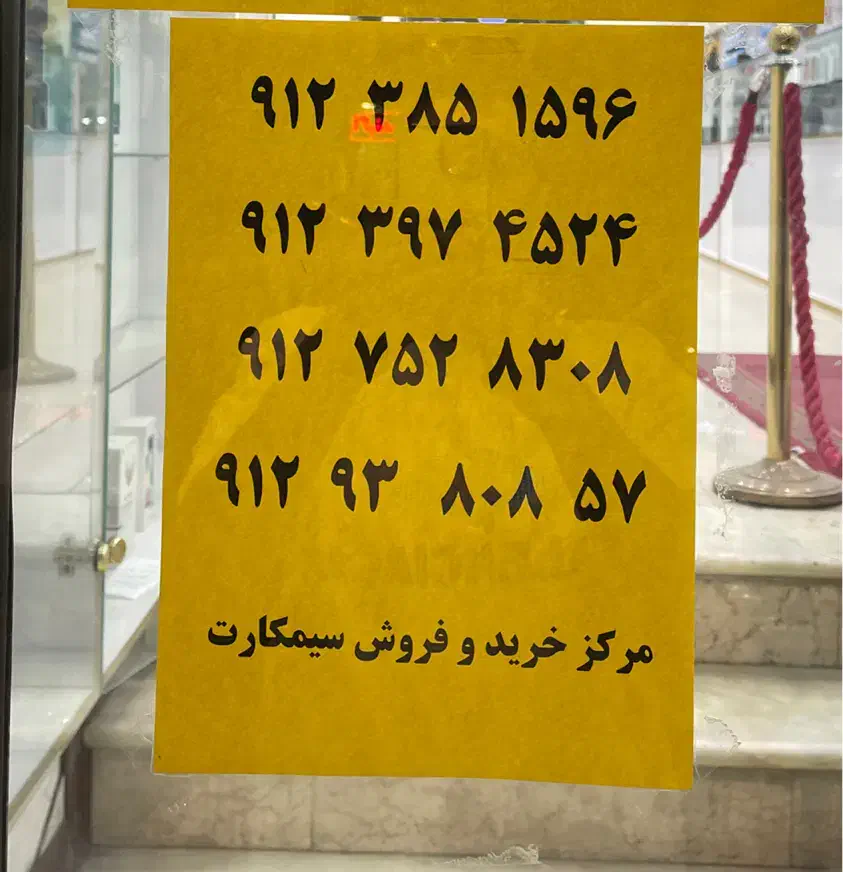 ۹۱۲ ۳۸۵ ۱۵۹۶
۹۱۲ ۳۹۷ ۴۵۲۴
۹۱۲ ۷۵۲ ۸۳۰۸
۹۱۲ ۹۳ ۸۰۸ ۵۷
مرکز خرید و فروش سیمکارت